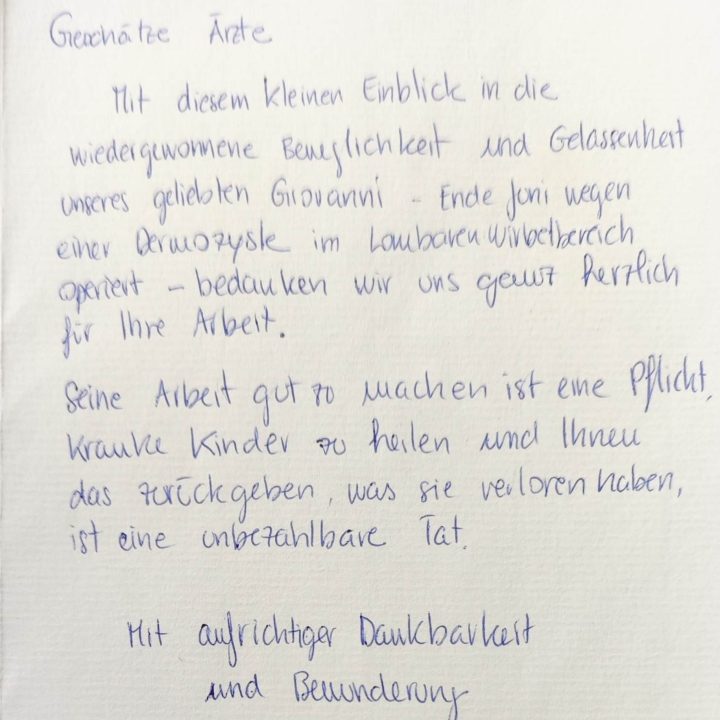 Geschätze Ärzte
Mit diesem kleinen Einblick in die
wiedergewonnene Beweglichkeit und Gelassenheit
unseres geliebten Giovanni - Ende Juni wegen
einer Dermozyste im Lombaren Wirbelbereich
operiert - bedanken wir uns ganz herzlich
für Ihre Arbeit.
Seine Arbeit gut zu machen ist eine Pflicht,
kranke Kinder zu heilen und Ihnen
das zurückgeben, was sie verloren haben,
ist eine unbezahlbare Tat.
Mit aufrichtiger Dankbarkeit
und Bewunderung